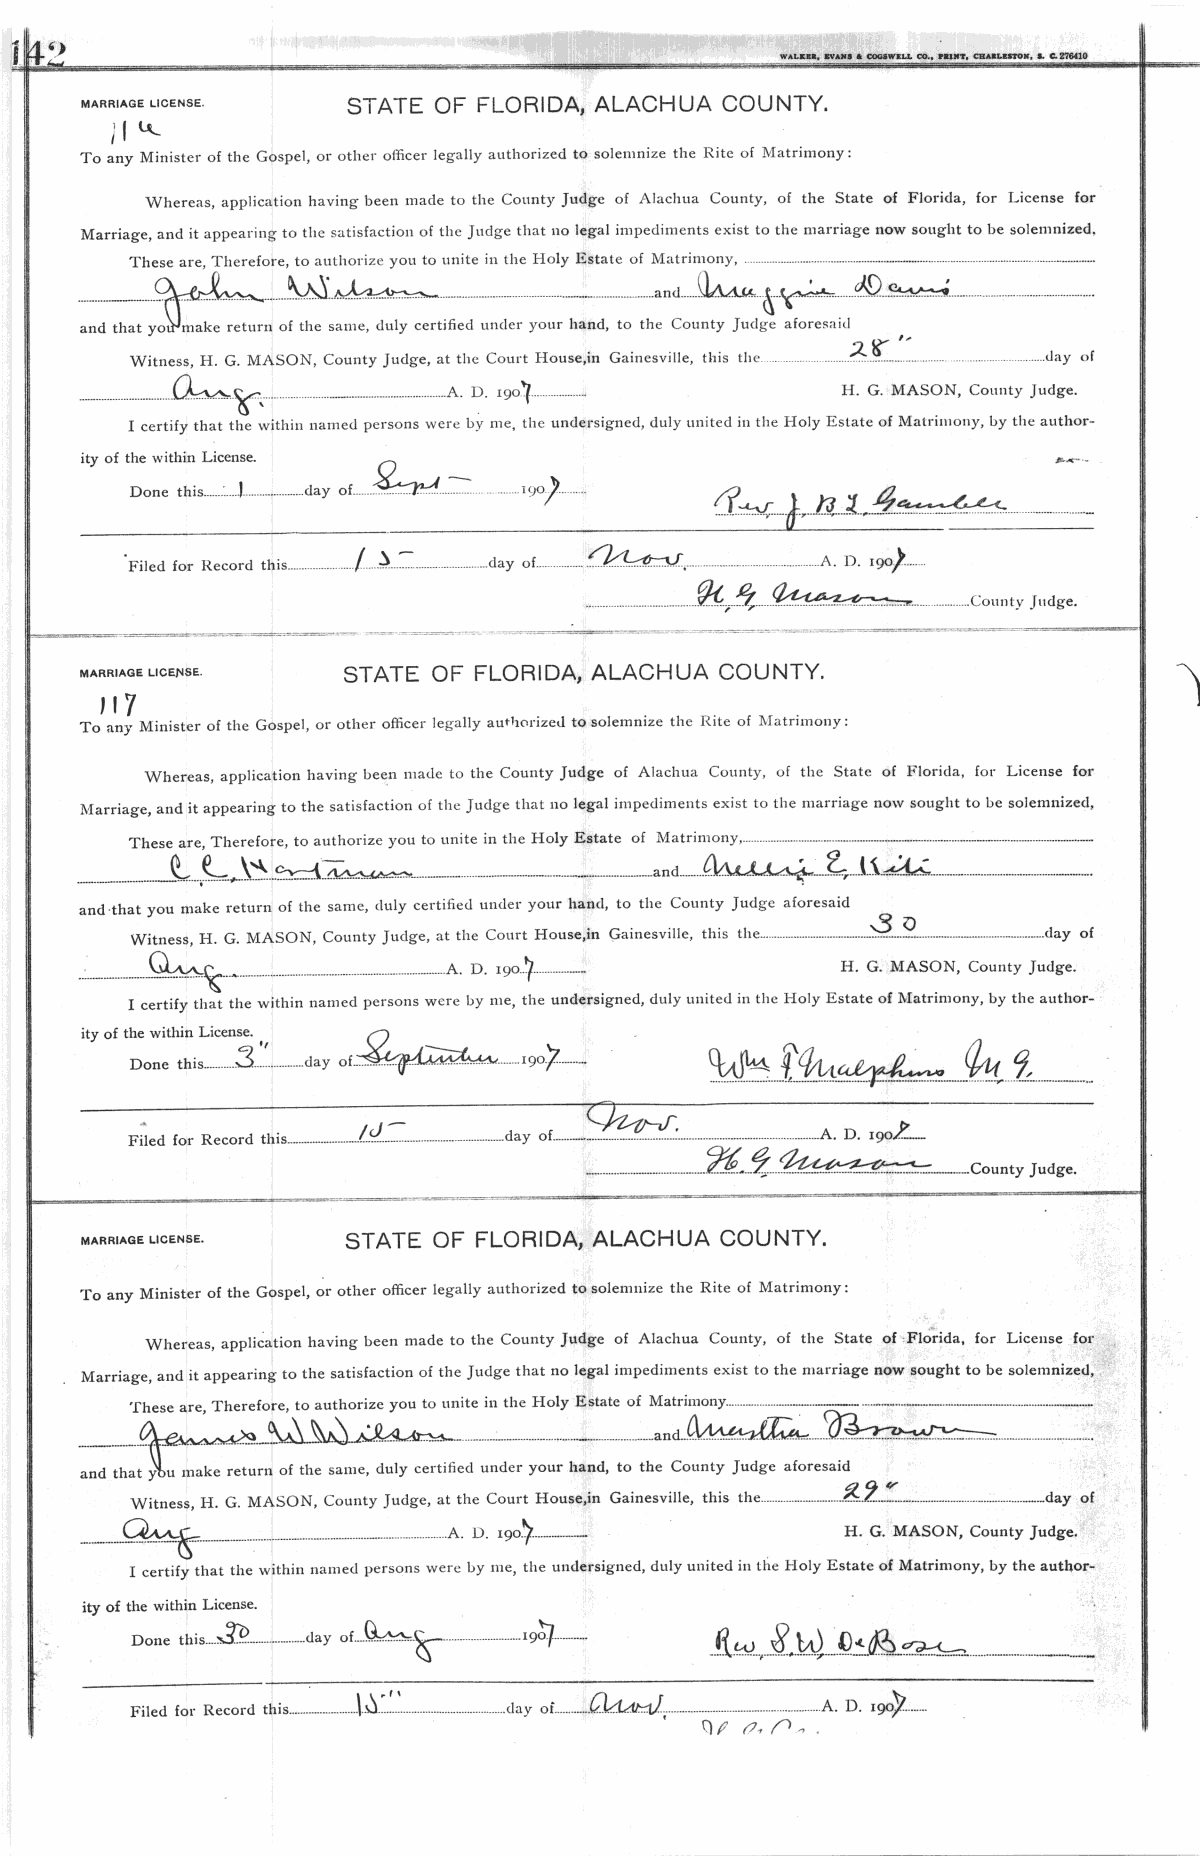 142
WALKER, EVANS & COGSWELL CO., PRINT, CHARLESTON, S. C. 276410
MARRIAGE LICENSE. STATE OF FLORIDA, ALACHUA COUNTY.
116
To any Minister of the Gospel, or other officer legally authorized to solemnize the Rite of Matrimony:
Whereas, application having been made to the County Judge of Alachua County, of the State of Florida, for License for
Marriage, and it appearing to the satisfaction of the Judge that no legal impediments exist to the marriage now sought to be solemnized,
These are, Therefore, to authorize you to unite in the Holy Estate of Matrimony,
John Wilson and Maggie Davis
and that you make return of the same, duly certified under your hand, to the County Judge aforesaid
Witness, H. G. MASON, County Judge, at the Court House, in Gainesville, this the 28" day of
Aug. A. D. 1907 H. G. MASON, County Judge.
I certify that the within named persons were by me, the undersigned, duly united in the Holy Estate of Matrimony, by the author-
ity of the within License.
Done this 1 day of Sept 1907 Rev. J. B. L. Gamble
Filed for Record this 15 day of Nov. A. D. 1907
H. G. Mason County Judge.
MARRIAGE LICENSE. STATE OF FLORIDA, ALACHUA COUNTY.
117
To any Minister of the Gospel, or other officer legally authorized to solemnize the Rite of Matrimony:
Whereas, application having been made to the County Judge of Alachua County, of the State of Florida, for License for
Marriage, and it appearing to the satisfaction of the Judge that no legal impediments exist to the marriage now sought to be solemnized,
These are, Therefore, to authorize you to unite in the Holy Estate of Matrimony,
C. C. Hartman and Nellie E.
and that you make return of the same, duly certified under your hand, to the County Judge aforesaid
Witness, H. G. MASON, County Judge, at the Court House, in Gainesville, this the 30 day of
Aug. A. D. 1907 H. G. MASON, County Judge.
I certify that the within named persons were by me, the undersigned, duly united in the Holy Estate of Matrimony, by the author-
ity of the within License.
Done this 3" day of September 1907 Wm F. Malphurs M. G.
Filed for Record this 15 day of Nov. A. D. 1907
H. G. Mason County Judge.
MARRIAGE LICENSE. STATE OF FLORIDA, ALACHUA COUNTY.
To any Minister of the Gospel, or other officer legally authorized to solemnize the Rite of Matrimony:
Whereas, application having been made to the County Judge of Alachua County, of the State of Florida, for License for
Marriage, and it appearing to the satisfaction of the Judge that no legal impediments exist to the marriage now sought to be solemnized,
These are, Therefore, to authorize you to unite in the Holy Estate of Matrimony
James W Wilson and Martha Brown
and that you make return of the same, duly certified under your hand, to the County Judge aforesaid
Witness, H. G. MASON, County Judge, at the Court House, in Gainesville, this the 29" day of
Aug A. D. 1907 H. G. MASON, County Judge.
I certify that the within named persons were by me, the undersigned, duly united in the Holy Estate of Matrimony, by the author-
ity of the within License.
Done this 30 day of Aug 1907 Rev. S. W. DeBose
Filed for Record this 15" day of Nov. A. D. 1907